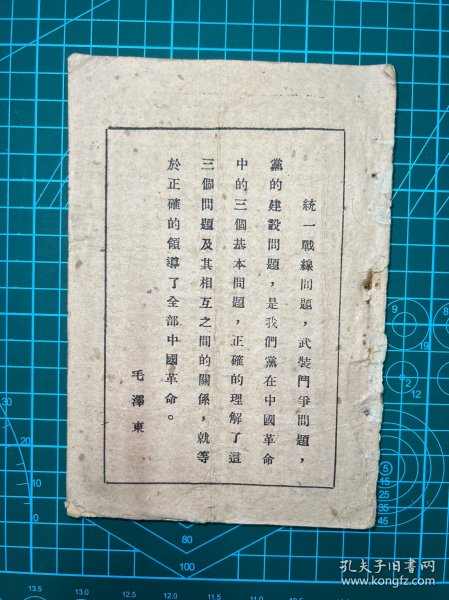 統一戰線問題，武裝鬥爭問題，
黨的建設問題，是我們黨在中國革命
中的三個基本問題，正確的理解了這
三個問題及其相互之間的關係，就等
於正確的領導了全部中國革命。
毛澤東
孔夫子旧书网
www.kongfz.com